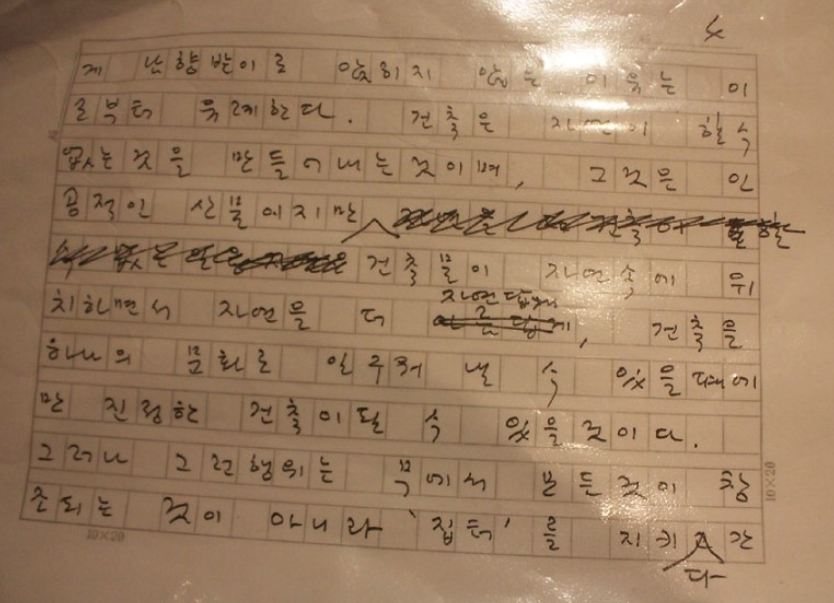 4
게 난향받이로 앉히지 않는 이유는 이
로부터 유래한다. 건축은 자연이 할수
없는것을 만들어내는것이며, 그것은 인
공적인 산물이지만
건축물이 자연속에 위
치하면서 자연을 더 자연답게, 건축을
하나의 문화로 일구어 낼 수 있을때에
만 진정한 건축이될 수 있을것이다.
그러나 그런행위는 무에서 모든것이 창
조되는 것이 아니라 '집터'를 지키 간
다
10×20
10×20